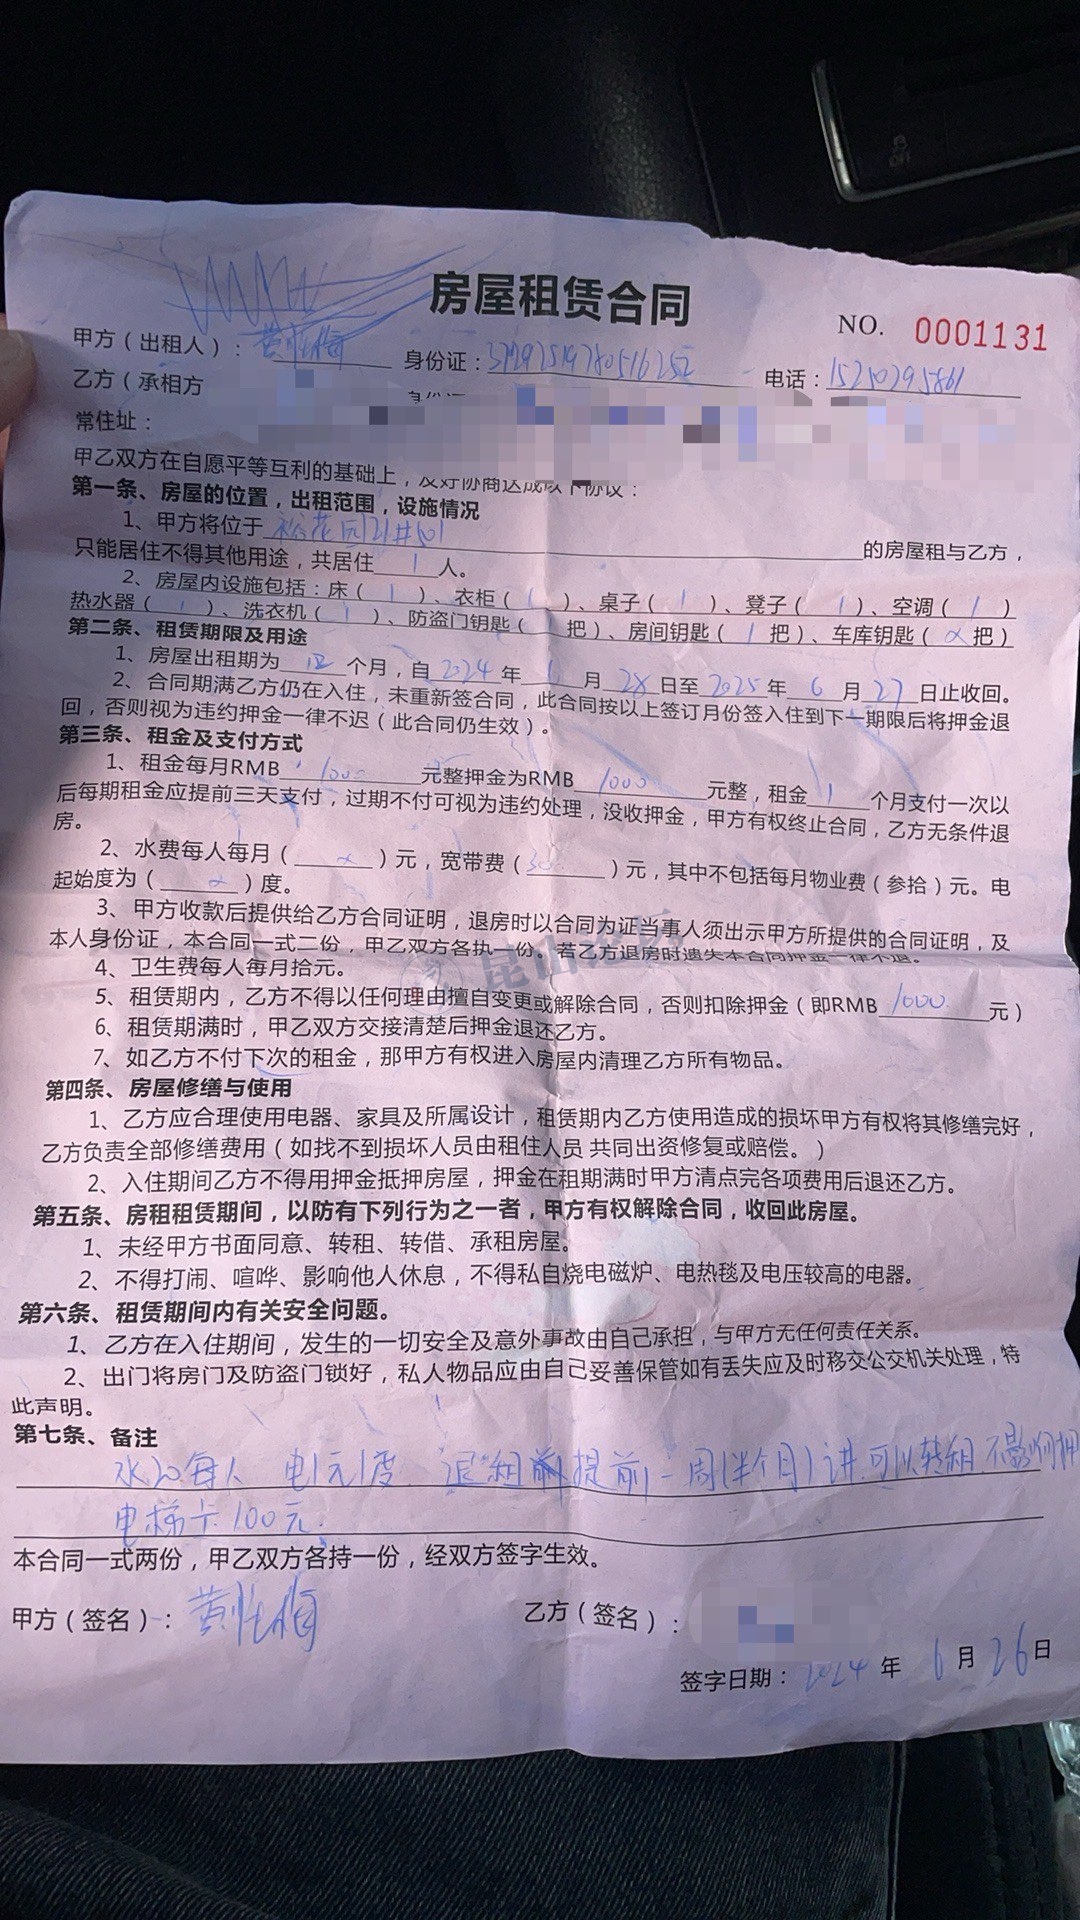 房屋租赁合同
NO. 0001131
甲方（出租人）： 身份证： 电话：15250295861
乙方（承相方
常住址：
甲乙双方在自愿平等互利的基础上，友好协商达成以下协议：
第一条、房屋的位置，出租范围，设施情况
1、甲方将位于 花园21#501 的房屋租与乙方，
只能居住不得其他用途，共居住 1 人。
2、房屋内设施包括：床（ 1 ）、衣柜（ 1 ）、桌子（ 1 ）、凳子（ 1 ）、空调（ 1 ）
热水器（ 1 ）、洗衣机（ 1 ）、防盗门钥匙（ 1 把）、房间钥匙（ 1 把）、车库钥匙（ 把）
第二条、租赁期限及用途
1、房屋出租期为 个月，自 2024 年 6 月 28 日至 2025 年 6 月 27 日止收回。
2、合同期满乙方仍在入住，未重新签合同，此合同按以上签订月份签入住到下一期限后将押金退
回，否则视为违约押金一律不迟（此合同仍生效）。
第三条、租金及支付方式
1、租金每月RMB 1000 元整押金为RMB 1000 元整，租金 1 个月支付一次以
后每期租金应提前三天支付，过期不付可视为违约处理，没收押金，甲方有权终止合同，乙方无条件退
房。
2、水费每人每月（ ）元，宽带费（ ）元，其中不包括每月物业费（参拾）元。电
起始度为（ ）度。
3、甲方收款后提供给乙方合同证明，退房时以合同为证当事人须出示甲方所提供的合同证明，及
本人身份证，本合同一式二份，甲乙双方各执一份。若乙方退房时遗失本合同押金一律不退。
昆山论坛
4、卫生费每人每月拾元。
5、租赁期内，乙方不得以任何理由擅自变更或解除合同，否则扣除押金（即RMB 1000 元）
6、租赁期满时，甲乙双方交接清楚后押金退还乙方。
7、如乙方不付下次的租金，那甲方有权进入房屋内清理乙方所有物品。
第四条、房屋修缮与使用
1、乙方应合理使用电器、家具及所属设计，租赁期内乙方使用造成的损坏甲方有权将其修缮完好，
乙方负责全部修缮费用（如找不到损坏人员由租住人员 共同出资修复或赔偿。）
2、入住期间乙方不得用押金抵押房屋，押金在租期满时甲方清点完各项费用后退还乙方。
第五条、房租租赁期间，以防有下列行为之一者，甲方有权解除合同，收回此房屋。
1、未经甲方书面同意、转租、转借、承租房屋。
2、不得打闹、喧哗、影响他人休息，不得私自烧电磁炉、电热毯及电压较高的电器。
第六条、租赁期间内有关安全问题。
1、乙方在入住期间，发生的一切安全及意外事故由自己承担，与甲方无任何责任关系。
2、出门将房门及防盗门锁好，私人物品应由自己妥善保管如有丢失应及时移交公交机关处理，特
此声明。
第七条、备注
水20每人 电1元1度 退租前提前一周（半个月）讲 可以转租 不影响押
电梯卡100元
本合同一式两份，甲乙双方各持一份，经双方签字生效。
甲方（签名）： 乙方（签名）：
签字日期：2024 年 6 月 26 日